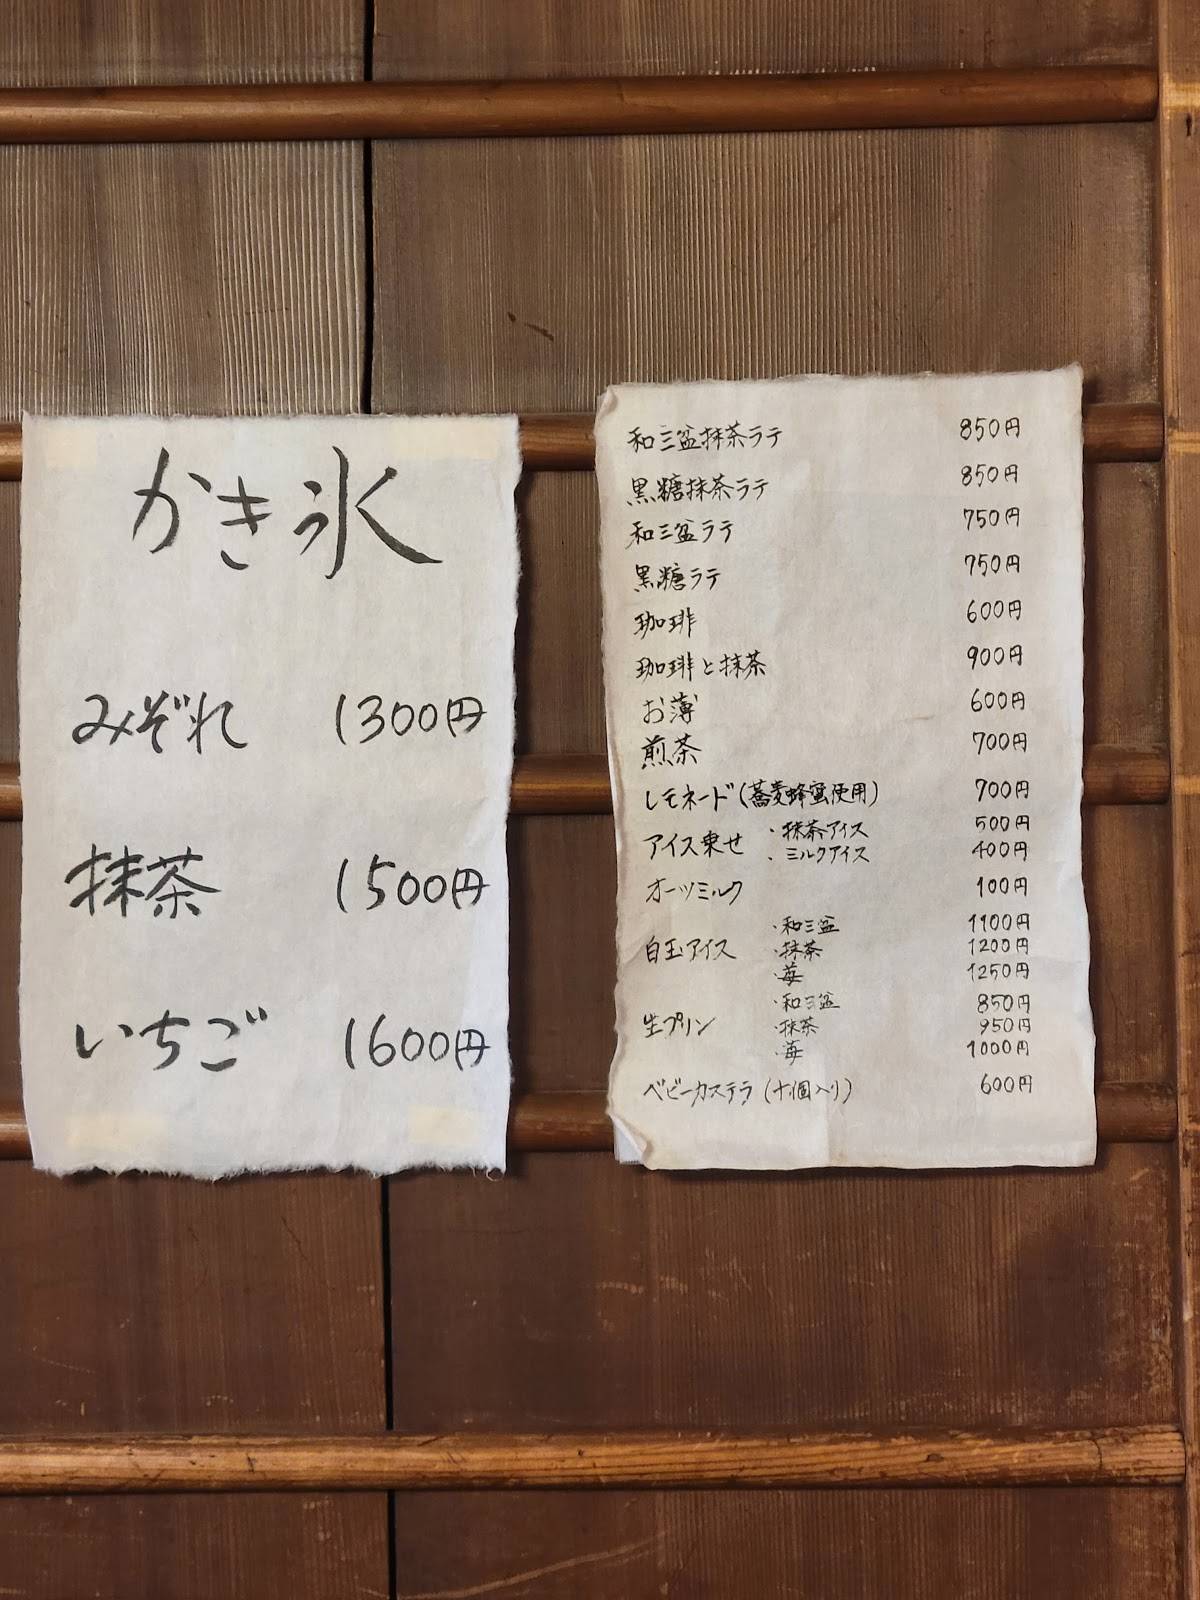 かき氷
みぞれ 1300円
抹茶 1500円
いちご 1600円
和三盆抹茶ラテ 850円
黒糖抹茶ラテ 850円
和三盆ラテ 750円
黒糖ラテ 750円
珈琲 600円
珈琲と抹茶 900円
お薄 600円
煎茶 700円
レモネード(蕎麦蜂蜜使用) 700円
アイス乗せ ・抹茶アイス 500円
・ミルクアイス 400円
オーツミルク 100円
・和三盆 1100円
白玉アイス ・抹茶 1200円
・苺 1250円
・和三盆 850円
生プリン ・抹茶 950円
・苺 1000円
ベビーカステラ(十個入り) 600円